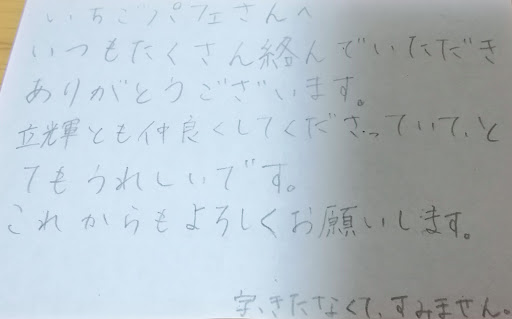 いちごパフェさんへ
いつもたくさん絡んでいただき
ありがとうございます。
立光軍とも仲良くしてくださっていて、と
てもうれしいです。
これからもよろしくお願いします。
字、きたなくて、すみません。